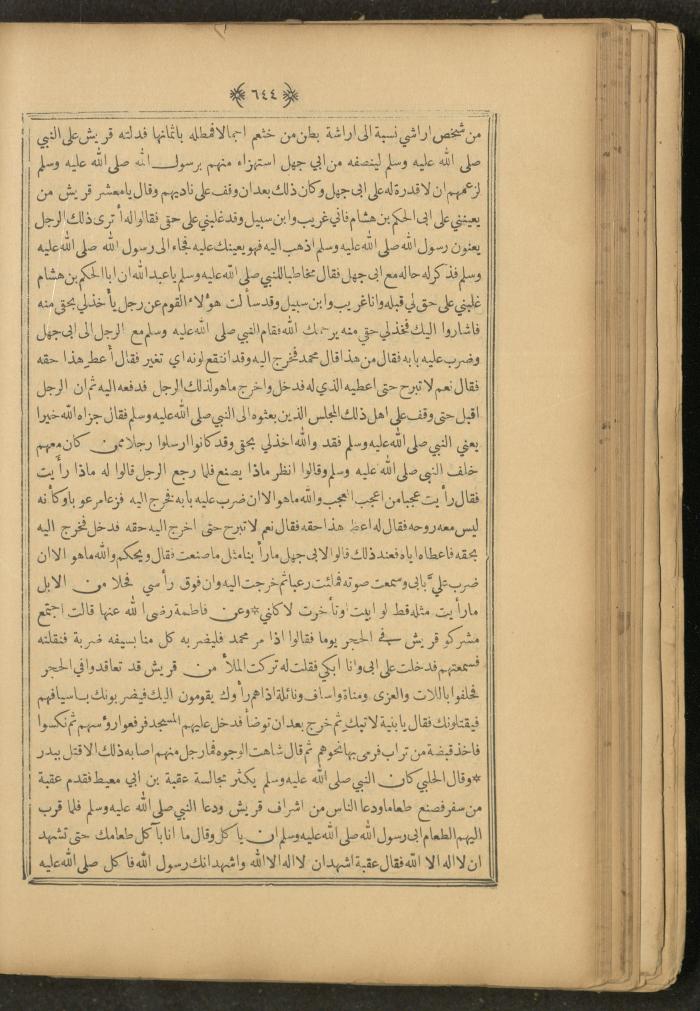 ٦٤٤
من شخص اراشي نسبة الى اراشة بطن من خثعم اجمالا فمطله باثمانها فدلته قريش على النبي
صلى الله عليه وسلم لينصفه من ابي جهل استهزاء منهم برسول الله صلى الله عليه وسلم
لزعمهم ان لا قدرة له على ابي جهل وكان ذلك بعد ان وقف على ناديهم وقال يا معشر قريش من
يعينني على ابى الحكم بن هشام فاني غريب وابن سبيل وقد غلبني على حقى فقالوا له أ ترى ذلك الرجل
يعنون رسول الله صلى الله عليه وسلم اذهب اليه فهو يعينك عليه فجاء الى رسول الله صلى الله عليه
وسلم فذكر له حاله مع ابى جهل فقال مخاطبا للنبي صلى الله عليه وسلم يا عبد الله ان ابا الحكم بن هشام
غلبني على حق لي قبله وانا غريب وابن سبيل وقد سألت هؤلاء القوم عن رجل يأخذ لي بحقي منه
فاشاروا اليك فخذ لي حقي منه يرحمك الله فقام النبي صلى الله عليه وسلم مع الرجل الى ابى جهل
وضرب عليه بابه فقال من هذا قال محمد فخرج اليه وقد انتقع لونه اي تغير فقال أعط هذا حقه
فقال نعم لا تبرح حتى اعطيه الذي له فدخل واخرج ما هو لذلك الرجل فدفعه اليه ثم ان الرجل
اقبل حتى وقف على اهل ذلك المجلس الذين بعثوه الى النبي صلى الله عليه وسلم فقال جزاه الله خيرا
يعني النبي صلى الله عليه وسلم فقد والله اخذ لي بحقى وقد كانوا ارسلوا رجلا ممن كان معهم
خلف النبى صلى الله عليه وسلم وقالوا انظر ماذا يصنع فلما رجع الرجل قالوا له ماذا رأيت
فقال رأيت عجبا من اعجب العجب والله ما هو الا ان ضرب عليه بابه فخرج اليه فزعا مرعوبا وكأنه
ليس معه روحه فقال له اعط هذا حقه فقال نعم لا تبرح حتى اخرج اليه حقه فدخل فخرج اليه
بحقه فاعطاه اياه فعند ذلك قالوا لابى جهل ما رأينا مثل ما صنعت فقال ويحكم والله ما هو الا ان
ضرب عليّ بابي وسمعت صوته فملئت رعبا ثم خرجت اليه وان فوق رأسي فحلا من الابل
ما رأيت مثله قط لو ابيت او تأخرت لاكلني * وعن فاطمة رضى الله عنها قالت اجتمع
مشركو قريش في الحجر يوما فقالوا اذا مر محمد فليضربه كل منا بسيفه ضربة فنقتله
فسمعتهم فدخلت على ابى وانا ابكي فقلت له تركت الملأ من قريش قد تعاقدوا في الحجر
فحلفوا باللات والعزى ومناة واساف ونائلة اذا هم رأوك يقومون اليك فيضربونك باسيافهم
فيقتلونك فقال يا بنية لا تبك ثم خرج بعد ان توضأ فدخل عليهم المسجد فرفعوا رؤسهم ثم نكسوا
فاخذ قبضة من تراب فرمى بها نحوهم ثم قال شاهت الوجوه فما رجل منهم اصابه ذلك الا قتل ببدر
* وقال الحلبي كان النبي صلى الله عليه وسلم يكثر مجالسة عقبة بن ابي معيط فقدم عقبة
من سفر فصنع طعاما ودعا الناس من اشراف قريش ودعا النبي صلى الله عليه وسلم فلما قرب
اليهم الطعام ابى رسول الله صلى الله عليه وسلم ان ياكل وقال ما انا بآكل طعامك حتى تشهد
ان لا اله الا الله فقال عقبة اشهد ان لا اله الا الله واشهد انك رسول الله فاكل صلى الله عليه